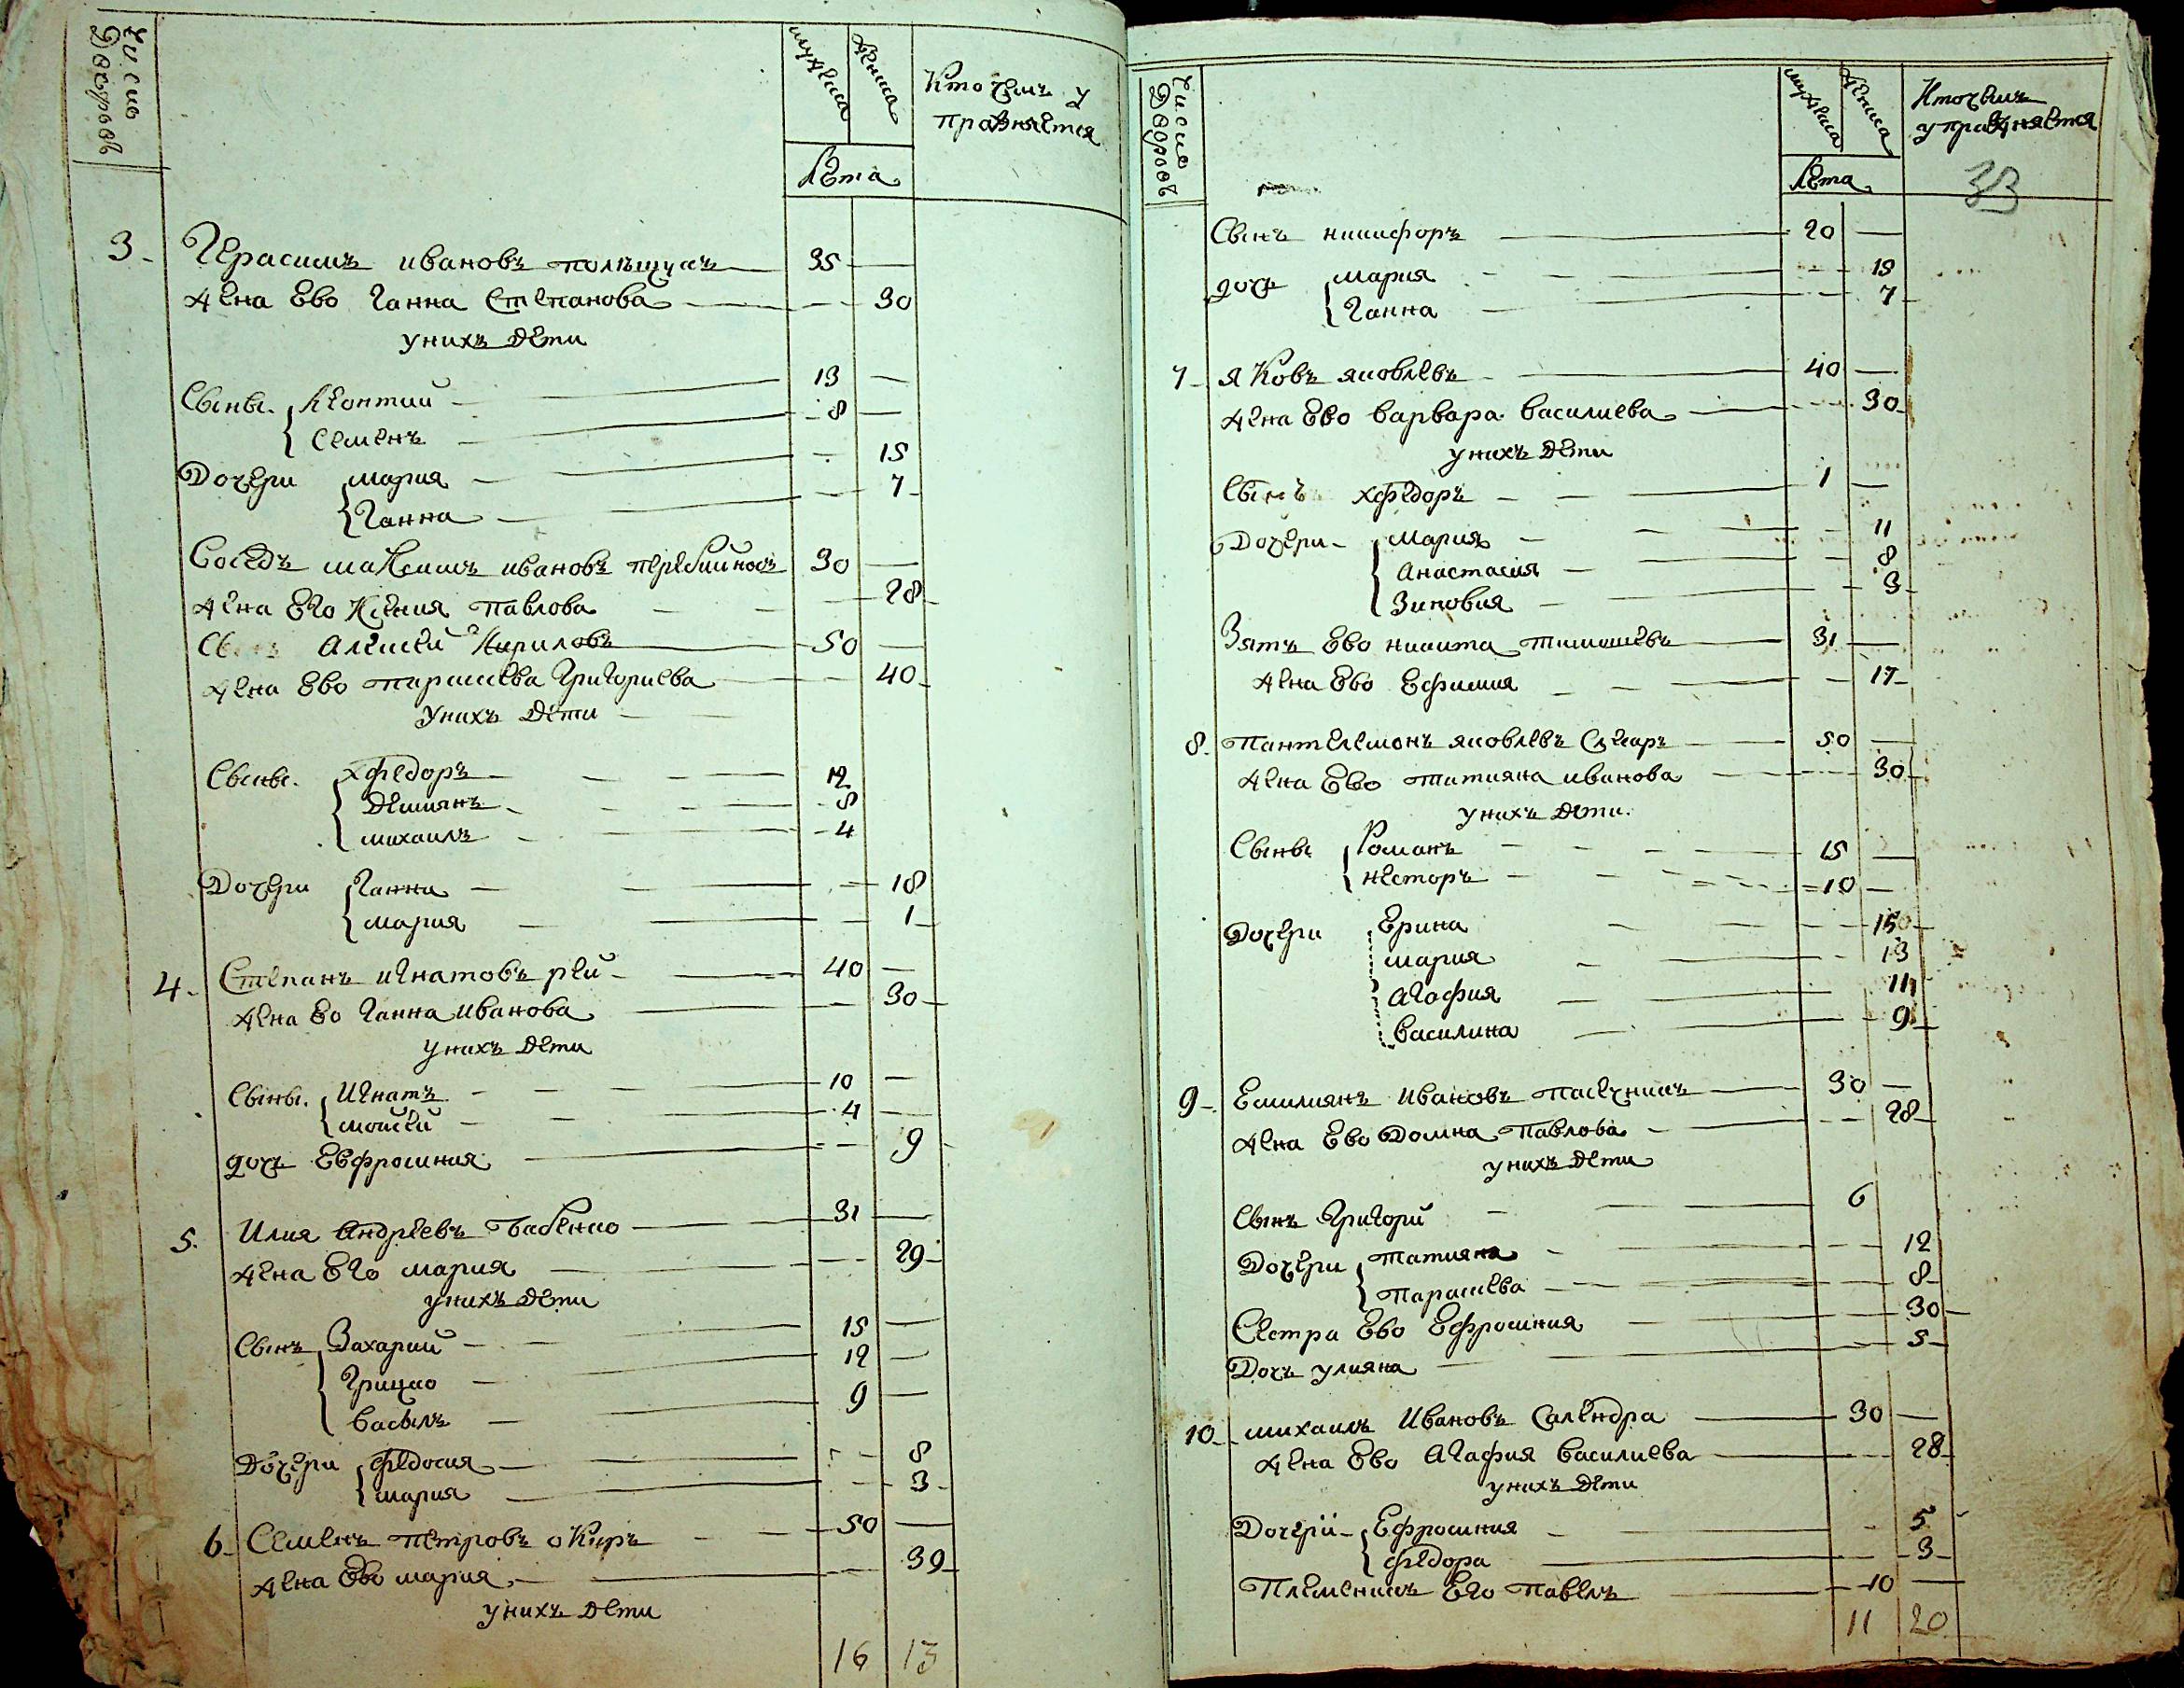 Число Дворовъ
мужеска
женска
Кто чемъ у
пражняется
Лета
3 Герасимъ ивановъ полѣщукъ 35
жена Ево Ганна Степанова 30
унихъ дети
Сыны Леонтий 13
Семенъ 8
Дочери мария 15
Ганна 7
Соседъ маКсимъ ивановъ перебийносъ 30
жена Его Ксения павлова 28
Алексей Кириловъ 50
жена Ево параскева Григориева 40
Унихъ дети
Сыны хфедоръ 12
Демиянъ 8
михаилъ 4
Дочери Ганна 18
мария 1
4 Степанъ игнатовъ рей 40
жена Ео Ганна иванова 30
унихъ дети
Сыны Игнатъ 10
моисей 4
дочь Евфросиния 9
5 Илия Андреевъ бабенко 31
жена Его мария 29
унихъ дети
Сынъ Захарий 15
Грицко 12
василь 9
Дочери федосия 8
мария 3
6 Семенъ петровъ 50
жена Ево мария 39
унихъ дети
16 13
Число Дворовъ
мужеска
женска
Кточемъ
упражняется
Лета
33
Сынъ никифоръ 20
дочь мария 15
Ганна 7
7 яКовъ яковлевъ 40
жена Ево варвара василиева 30
унихъ дети
Сынъ хфедоръ 1
Дочери мария 11
анастасия 8
Зиновия 3
Зять Ево никита тимошевъ 31
жена Ево Ефимия 17
8 пантелемонъ яковлевъ 50
жена Ево татияна иванова 30
унихъ дети
Сыны Романъ 15
несторъ 10
Дочери Ерина 150
мария 13
агафия 11
василина 9
9 Емилиянъ ивановъ пасечникъ 30
жена Ево Домна павлова 28
унихъ дети
Сынъ Григорий 6
Дочери татияна 12
параскева 8
Сестра Ево Ефросиния 30
Дочь улияна 5
10 михаилъ Ивановъ Салендра 30
жена Ево Агафия василиева 28
унихъ дети
Дочерїи Ефросиния 5
федора 3
Племеникъ Его павелъ 10
11 20